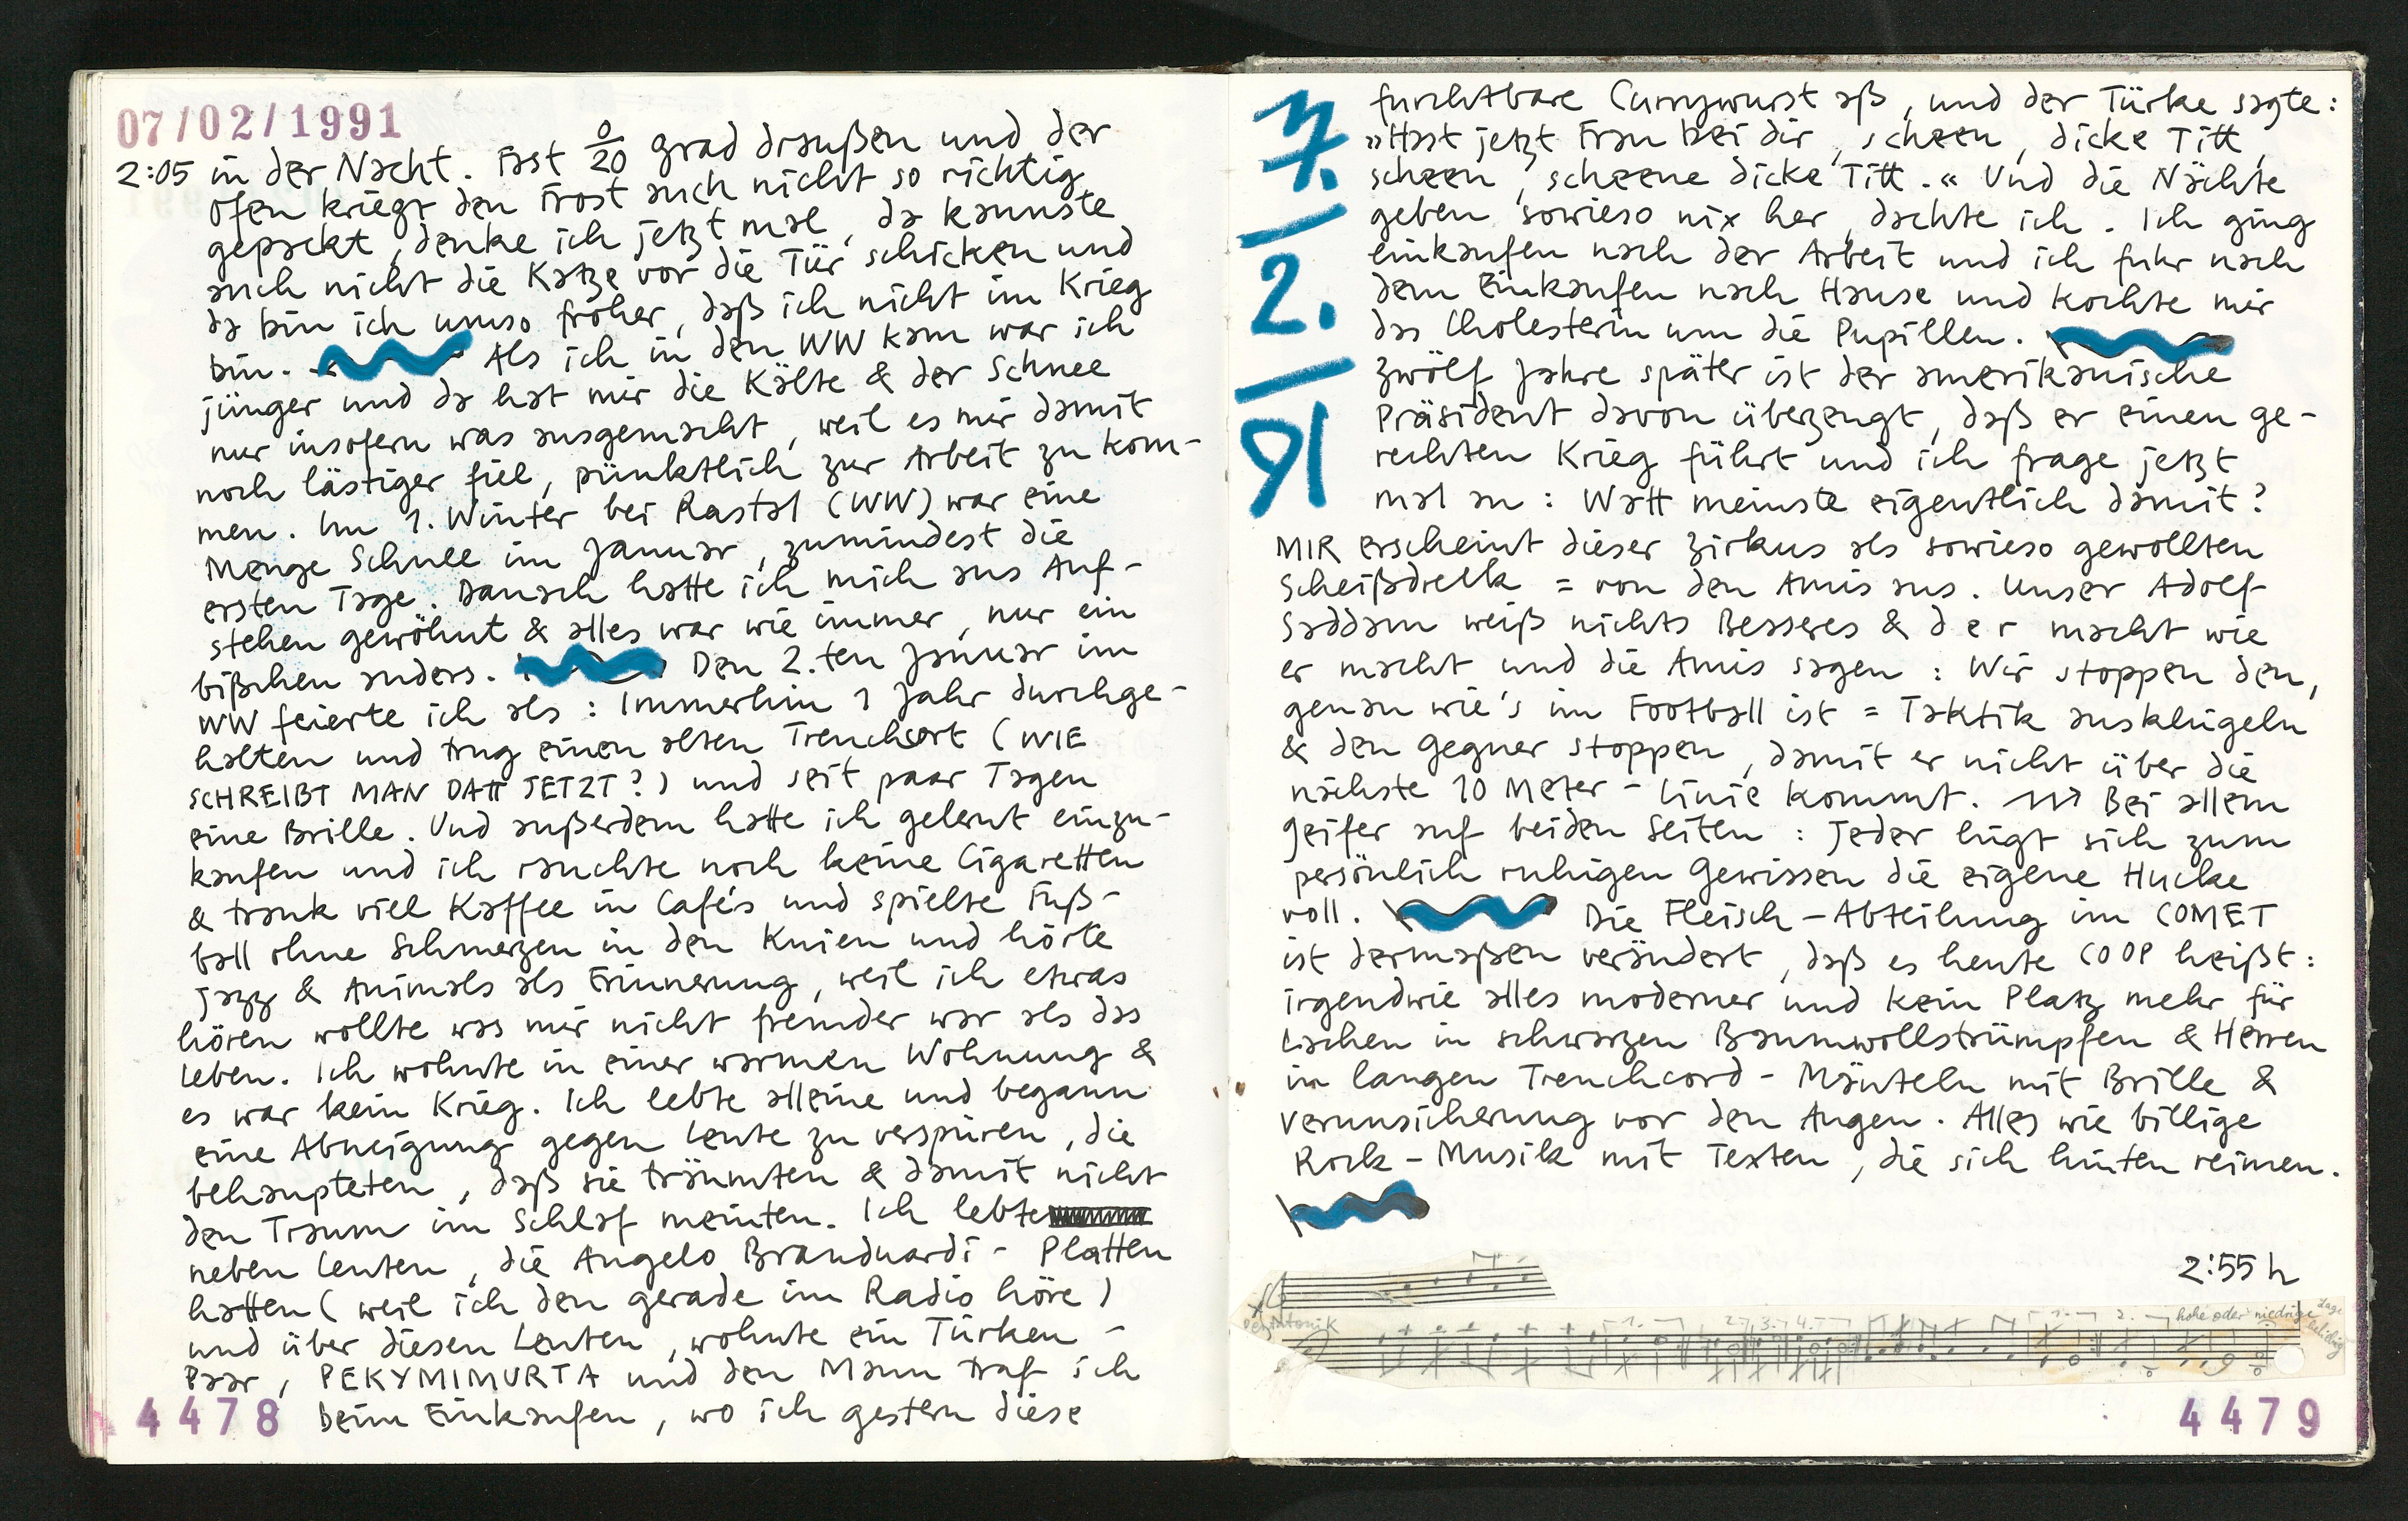 07/02/1991
2:05 in der Nacht. Fast 0/20 grad draußen und der
Ofen kriegt den Frost auch nicht so richtig
gepackt, denke ich jetzt mal, da kannste
auch nicht die Katze vor die Tür schicken und
da bin ich umso froher, daß ich nicht im Krieg
bin. Als ich in den WW kam war ich
jünger und da hat mir die Kälte & der Schnee
nur insofern was ausgemacht, weil es mir damit
noch lästiger fiel, pünktlich zur Arbeit zu kom-
men. Im 1. Winter bei Rastal (WW) war eine
Menge Schnee im Januar, zumindest die
ersten Tage. Danach hatte ich mich ans Auf-
stehen gewöhnt & alles war wie immer, nur ein
bißchen anders. Den 2.ten Januar im
WW feierte ich als: Immerhin 1 Jahr durchge-
halten und trug einen alten Trenchcort (WIE
SCHREIBT MAN DATT JETZT?) und seit paar Tagen
eine Brille. Und außerdem hatte ich gelernt einzu-
kaufen und ich rauchte noch keine Cigaretten
& trank viel Kaffee in Cafés und spielte Fuß-
ball ohne Schmerzen in den Knien und hörte
Jazz & Animals als Erinnerung, weil ich etwas
hören wollte was mir nicht fremder war als das
Leben. Ich wohnte in einer warmen Wohnung &
es war kein Krieg. Ich lebte alleine und begann
eine Abneigung gegen Leute zu verspüren, die
behaupteten, daß sie träumten & damit nicht
den Traum im Schlaf meinten. Ich lebte
neben Leuten, die Angelo Branduardi - Platten
hatten (weil ich den gerade im Radio höre)
und über diesen Leuten, wohnte ein Türken-
Paar, PEKYMIMURTA und den Mann traf ich
beim Einkaufen, wo ich gestern diese
4478
7.
2.
91
furchtbare Currywurst aß, und der Türke sagte:
»Hast jetzt Frau bei dir, scheen, dicke Titt,
scheen, scheene dicke Titt.« Und die Nächte
geben sowieso nix her, dachte ich. Ich ging
einkaufen nach der Arbeit und ich fuhr nach
dem Einkaufen nach Hause und kochte mir
das Cholesterin um die Pupillen.
Zwölf Jahre später ist der amerikanische
Präsident davon überzeugt, daß er einen ge-
rechten Krieg führt und ich frage jetzt
mal an: Watt meinste eigentlich damit?
MIR erscheint dieser Zirkus als sowieso gewollten
Scheißdreck = von den Amis aus. Unser Adolf
Saddam weiß nichts Besseres & der macht wie
er macht und die Amis sagen: Wir stoppen den,
genau wie's im Football ist = Taktik ausklügeln
& den Gegner stoppen, damit er nicht über die
nächste 10 Meter-Linie kommt. Bei allem
Geifer auf beiden Seiten: Jeder lügt sich zum
persönlich ruhigen Gewissen die eigene Hucke
voll. Die Fleisch-Abteilung im COMET
ist dermaßen verändert, daß es heute COOP heißt:
irgendwie alles moderner und kein Platz mehr für
Lachen in schwarzen Baumwollstrümpfen & Herren
in langen Trenchcord-Mänteln mit Brille &
Verunsicherung vor den Augen. Alles wie billige
Rock-Musik mit Texten, die sich hinten reimen.
2:55 h
Pentatonik 1. 2. 3. 4. 1. 2. hohe oder niedrige Lage beliebig
4479